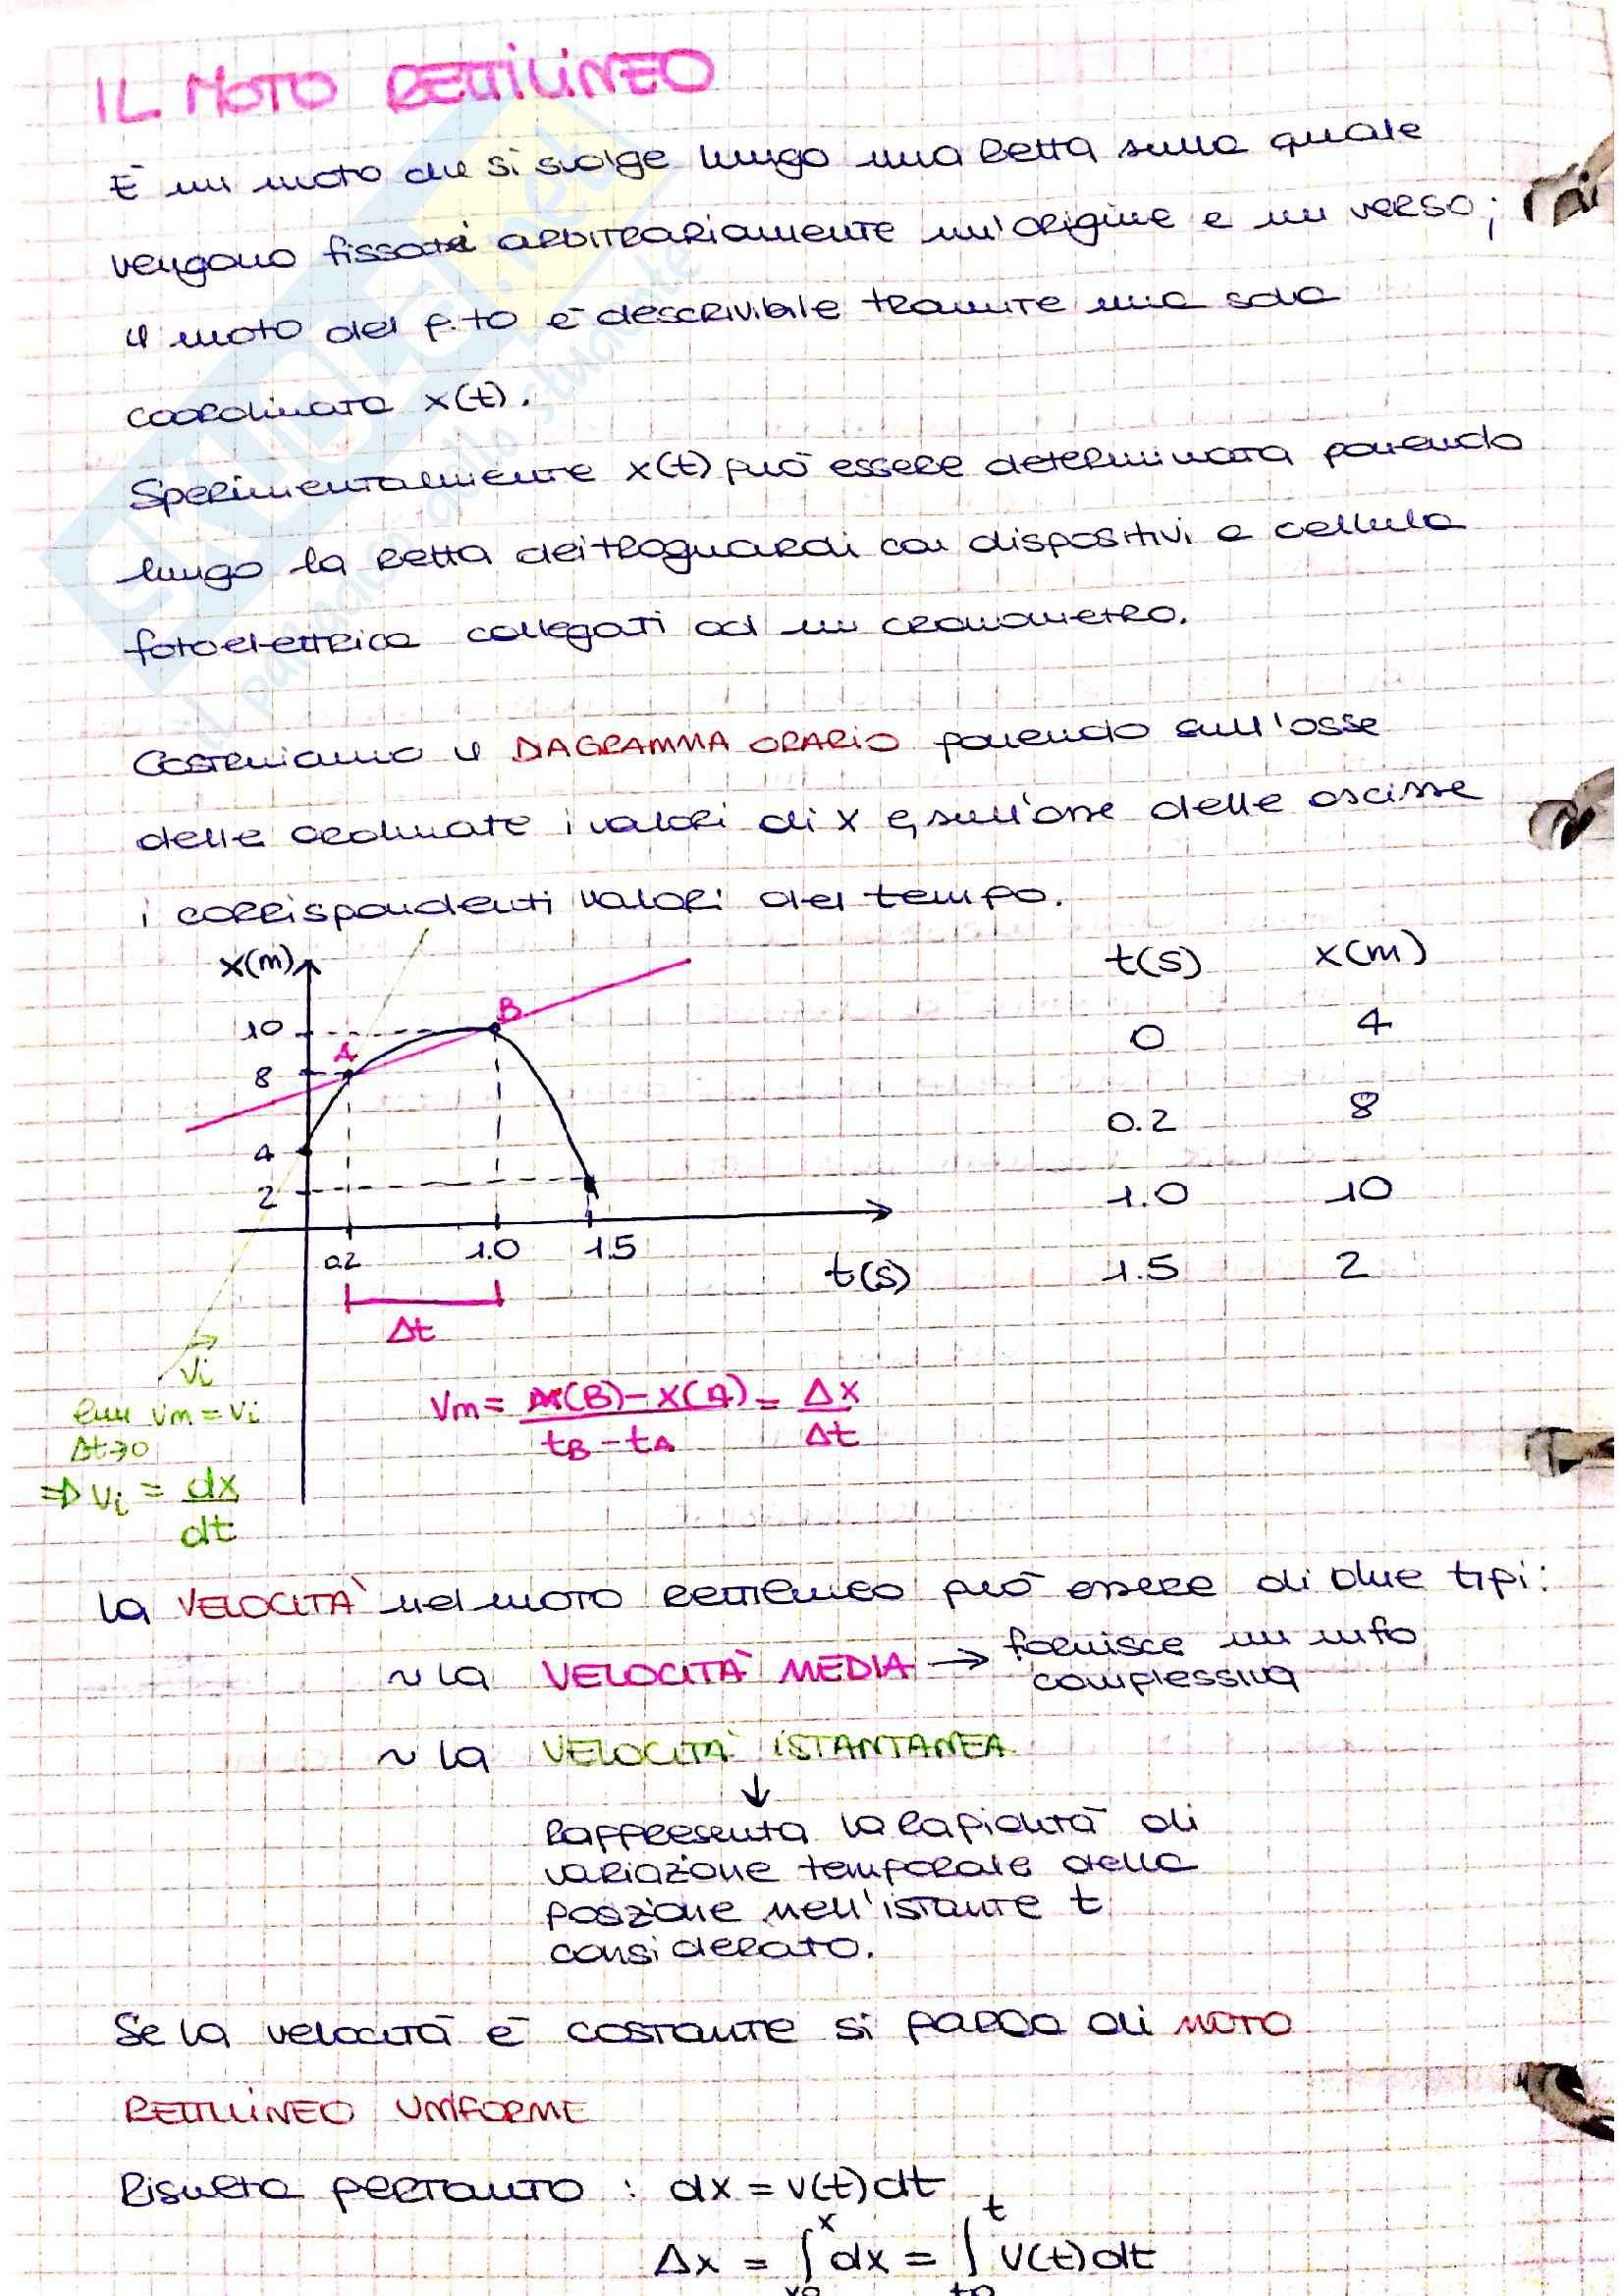 IL MOTO RETTILINEO
È un moto che si svolge lungo una retta sulla quale
vengono fissati arbitrariamente un'origine e un verso;
il moto del p.to è descrivibile tramite una sola
coordinata x(t).
Sperimentalmente x(t) può essere determinata ponendo
lungo la retta dei traguardi con dispositivi a cellula
fotoelettrica collegati ad un cronometro.
Costruiamo il DIAGRAMMA ORARIO ponendo sull'asse
delle ordinate i valori di x e, sull'asse delle ascisse
i corrispondenti valori del tempo.
x(m)
10
8
4
2
A
B
0.2 1.0 1.5
t(s)
Δt
t(s) x(m)
0 4
0.2 8
1.0 10
1.5 2
Vi
lim vm = vi
Δt→0
⇒ vi = dx
dt
Vm = x(B) - x(A) = Δx
tB - tA Δt
La VELOCITÀ nel moto rettilineo può essere di due tipi:
~ la VELOCITÀ MEDIA → fornisce un info
complessiva
~ la VELOCITÀ ISTANTANEA
↓
Rappresenta la rapidità di
variazione temporale della
posizione nell'istante t
considerato.
Se la velocità è costante si parla di MOTO
RETTILINEO UNIFORME
Risulta pertanto : dx = v(t)dt
Δx = ∫ x x0 dx = ∫ t t0 v(t)dt
SKUOLA.net
il paradiso dello studente